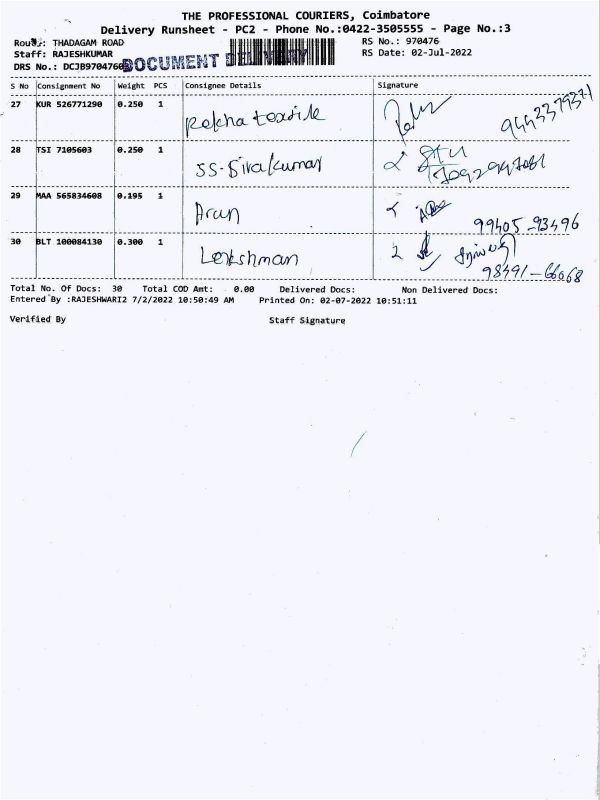 THE PROFESSIONAL COURIERS, Coimbatore
Delivery Runsheet - PC2 - Phone No.:0422-3505555 - Page No.:3
Route: THADAGAM ROAD
RS No.: 970476
Staff: RAJESHKUMAR
RS Date: 02-Jul-2022
DRS No.: DCJB970476
DOCUMENT DELIVERY
S No Consignment No Weight PCS Consignee Details Signature
27 KUR 526771290 0.250 1 Rekha textile
28 TSI 7105603 0.250 1 SS-Sivakumar
29 MAA 565834608 0.195 1 Arun 99405-93496
30 BLT 100084130 0.300 1 Lekshman 98491-66068
Total No. Of Docs: 30 Total COD Amt: 0.00 Delivered Docs: Non Delivered Docs:
Entered By :RAJESHWARI2 7/2/2022 10:50:49 AM Printed On: 02-07-2022 10:51:11
Verified By Staff Signature